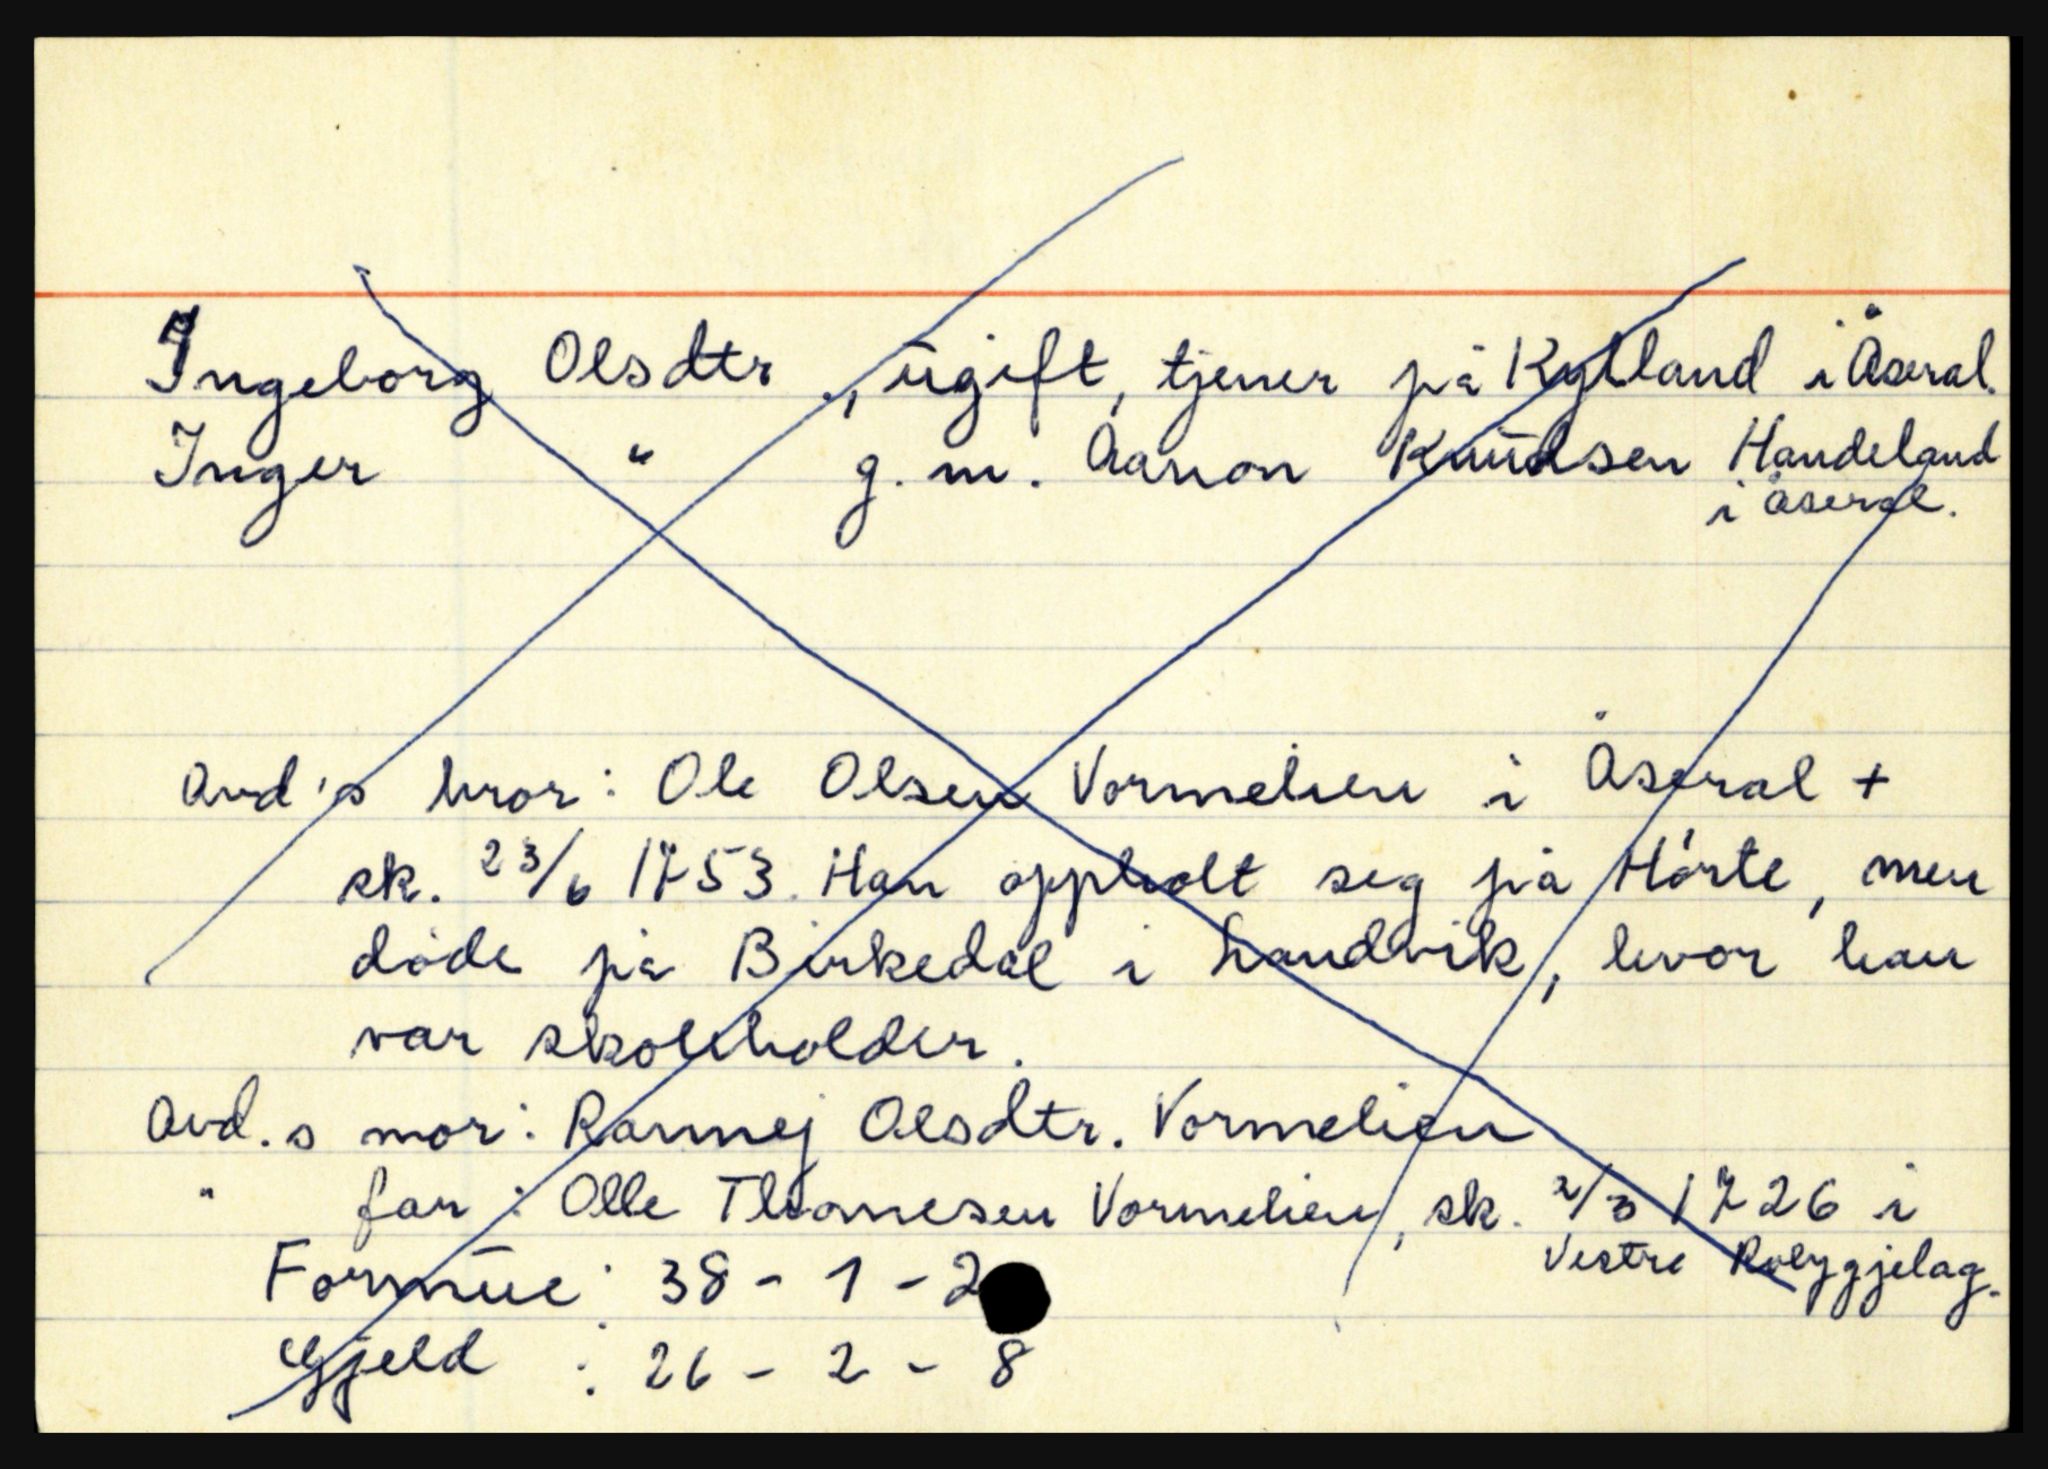 Ingeborg Olsdtr., ugift, tjener på Kylland i Åseral.
Inger " g.m. Aanon Knudsen Handeland
i Åseral.
Avd's bror: Ole Olsen Vormelien i Åseral +
sk. 23/6 1753. Han oppholt seg på Hörte, men
döde på Birkedal i Landvik, hvor han
var skoleholder.
Avd.s mor: Rannej Olsdtr. Vormelien
" far: Olle Thomesen Vormelien, sk. 2/3 1726 i
Vestre Robyggjelag.
Formue: 38 - 1 - 2
Gjeld : 26 - 2 - 8